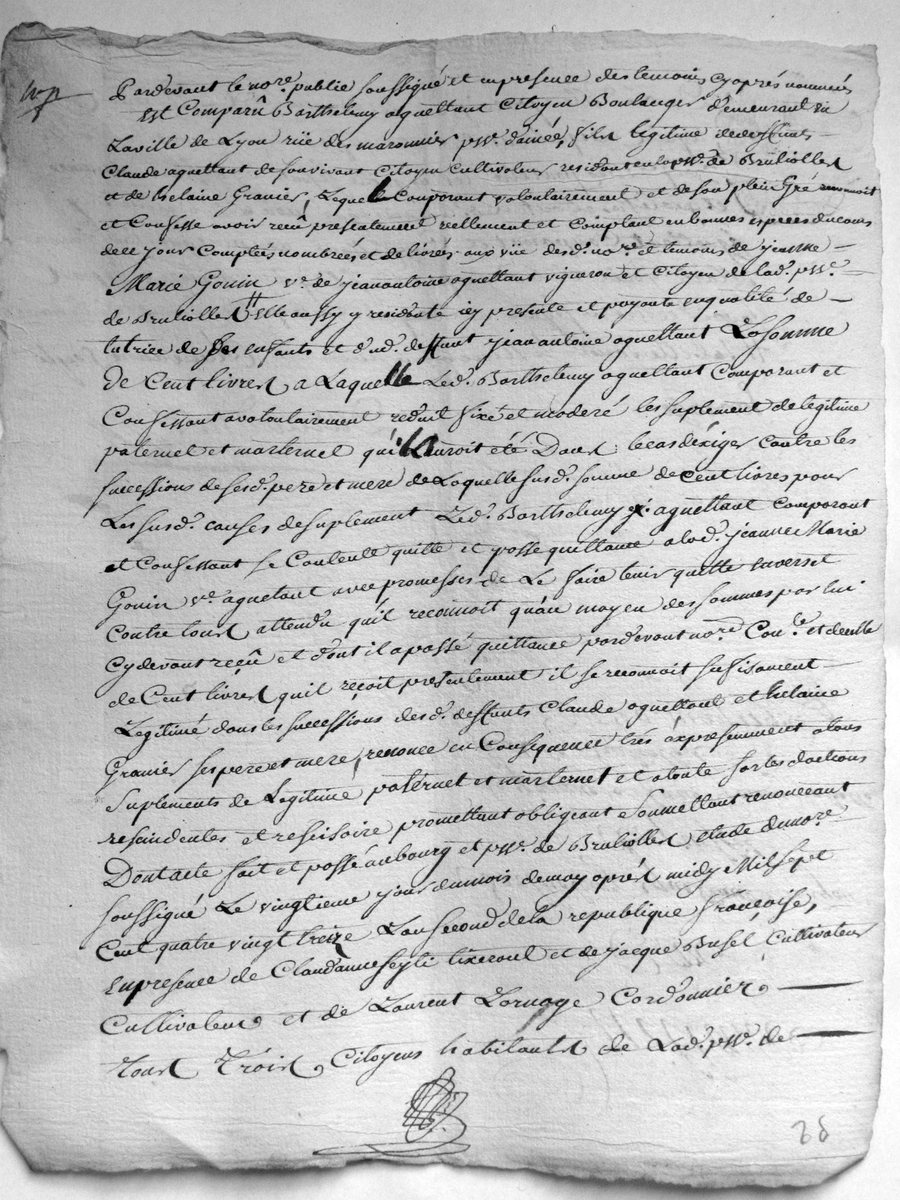 Pardevant le nore. public soussigné et en presence des temoins cy après nommés
Est Comparû Barthelemy aguettant Citoyen Boulanger demeurant en
Laville de Lyon rüe des maronnier psse. d'ainée, fils legitime de deffunts
Claude aguettant de son vivant Citoyen Cultivateur residant en la psse. de Brulliolles
et de helaine Granier, Lequel Comparant volontairement et de son plein Gré reconnoit
et Confesse avoir reçû presentement reellement et Comptant en bonnes especes du cours
de ce jour Comptées nombrées et delivrés aux vüe desd. nore. et temoins de jeanne
Marie Gonin ve. de jean antoine aguettant vigneron et Citoyen de lad. psse.
de Brulliolles Elle aussy y residente icy presente et payante en qualité de
tutrice de ses enfants et dud. deffunt jean antoine aguettant La Somme
de Cent livres a Laquelle Led. Barthelemy aguettant Comparant et
Confessant a volontairement reduit fixé et moderé les suplement de legitime
paternel et marternel qu'il auroit été Dans le cas d'éxiger contre les
successions de sesd. pere et mere de Laquelle susd. somme de Cent livres pour
Les susd. causes de suplement Led. Barthelemy aguettant Comparant
et Confessant se Contente quitte et passe quittance a lad. jeanne Marie
Gonin ve. aguetant avec promesses de Le faire tenir quitte envers et
Contre tous attendu qu'il reconnoit qu'au moyen des sommes par lui
Cy devant reçû et dont il a passé quittance pardevant nore. et de celle
de Cent livres qu'il reçoit presentement il se reconnoit sufisament
Legitimé dans les successions desd. deffunts Claude aguettant et helaine
Granier ses pere et mere, renonce en Consequence trés éxpressement a tous
Suplements de Legitime paternel et marternel et a toute sortes d'actions
rescindentes et rescisoire promettant obligeant Soumettant renonceant
Dont acte fait et passé au bourg et psse. de Brulliolles etude du nore.
soussigné Le vingtieme jour du mois de may après midy Mil sept
Cent quatre vingt treize L'an second de la republique françoise,
en presence de et de jacque Cultivateur
Cultivateur et de Laurent Cordonnier
Tous Trois Citoyens habitants de Lad. psse. de
28